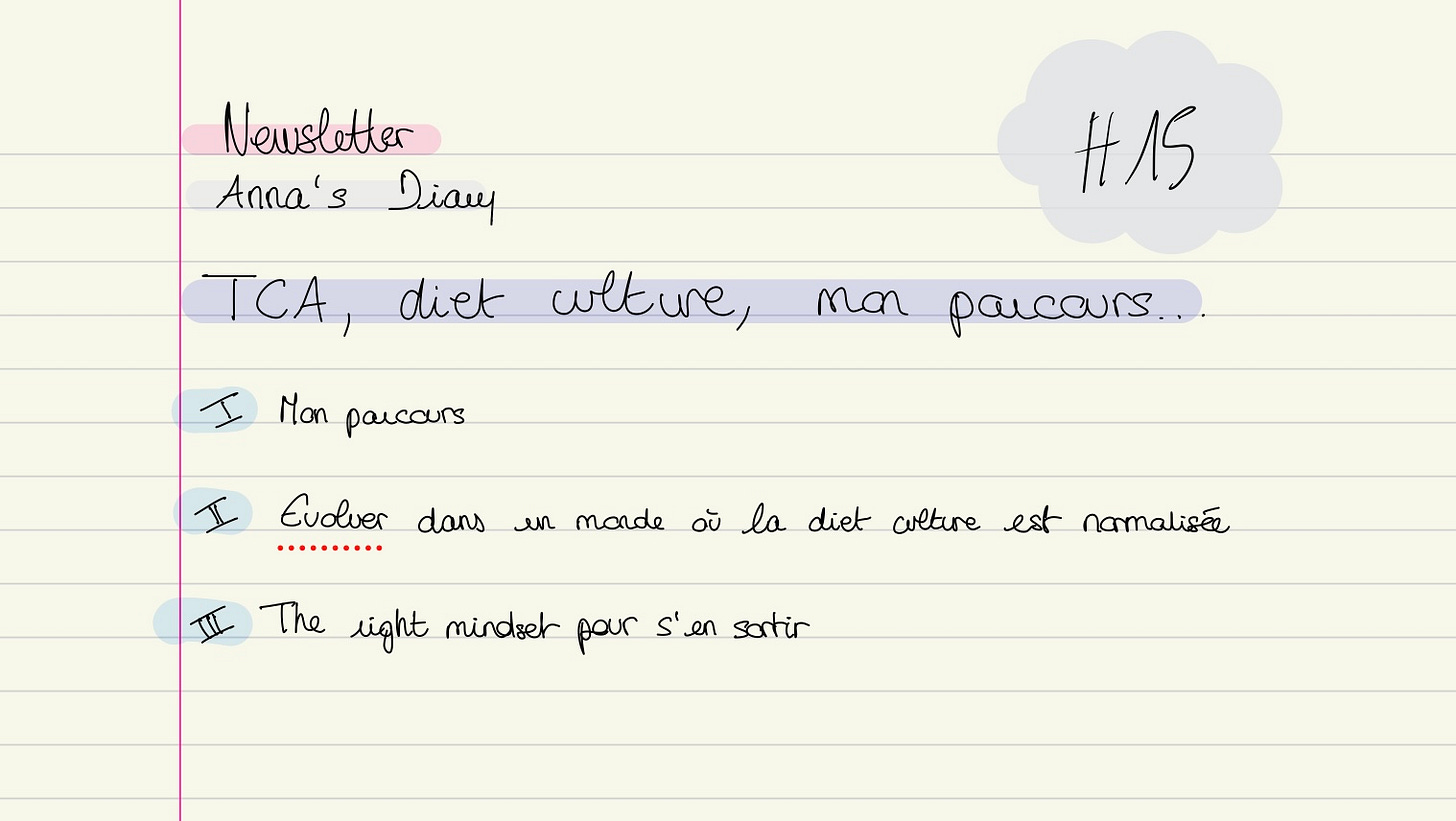 Newsletter
#15
Anna's Diary
TCA, diet culture, mon parcours...
I Mon parcours
II Evoluer dans un monde où la diet culture est normalisée
III The right mindset pour s'en sortir